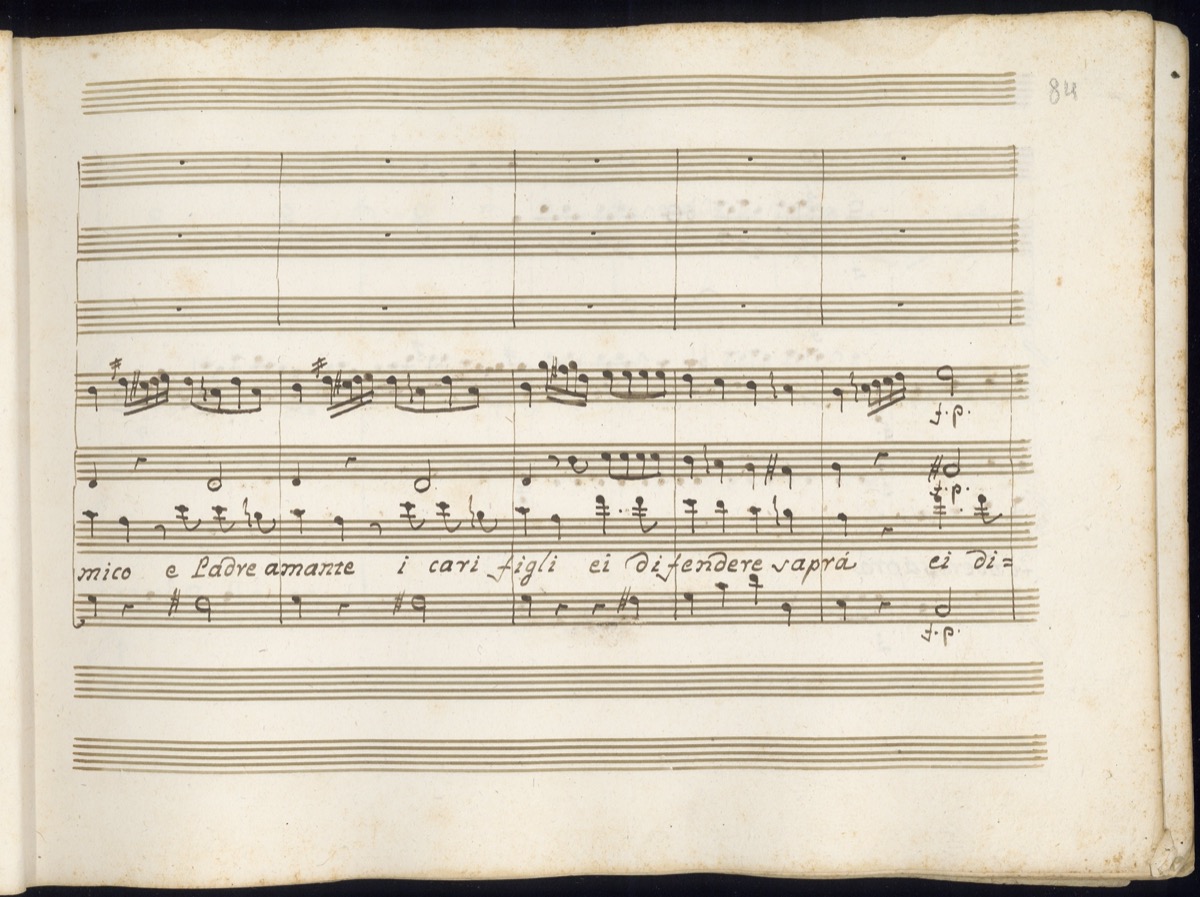 84
f. p.
f. p.
mico e Padre amante i cari figli ei difendere saprá ei di=
f. p.